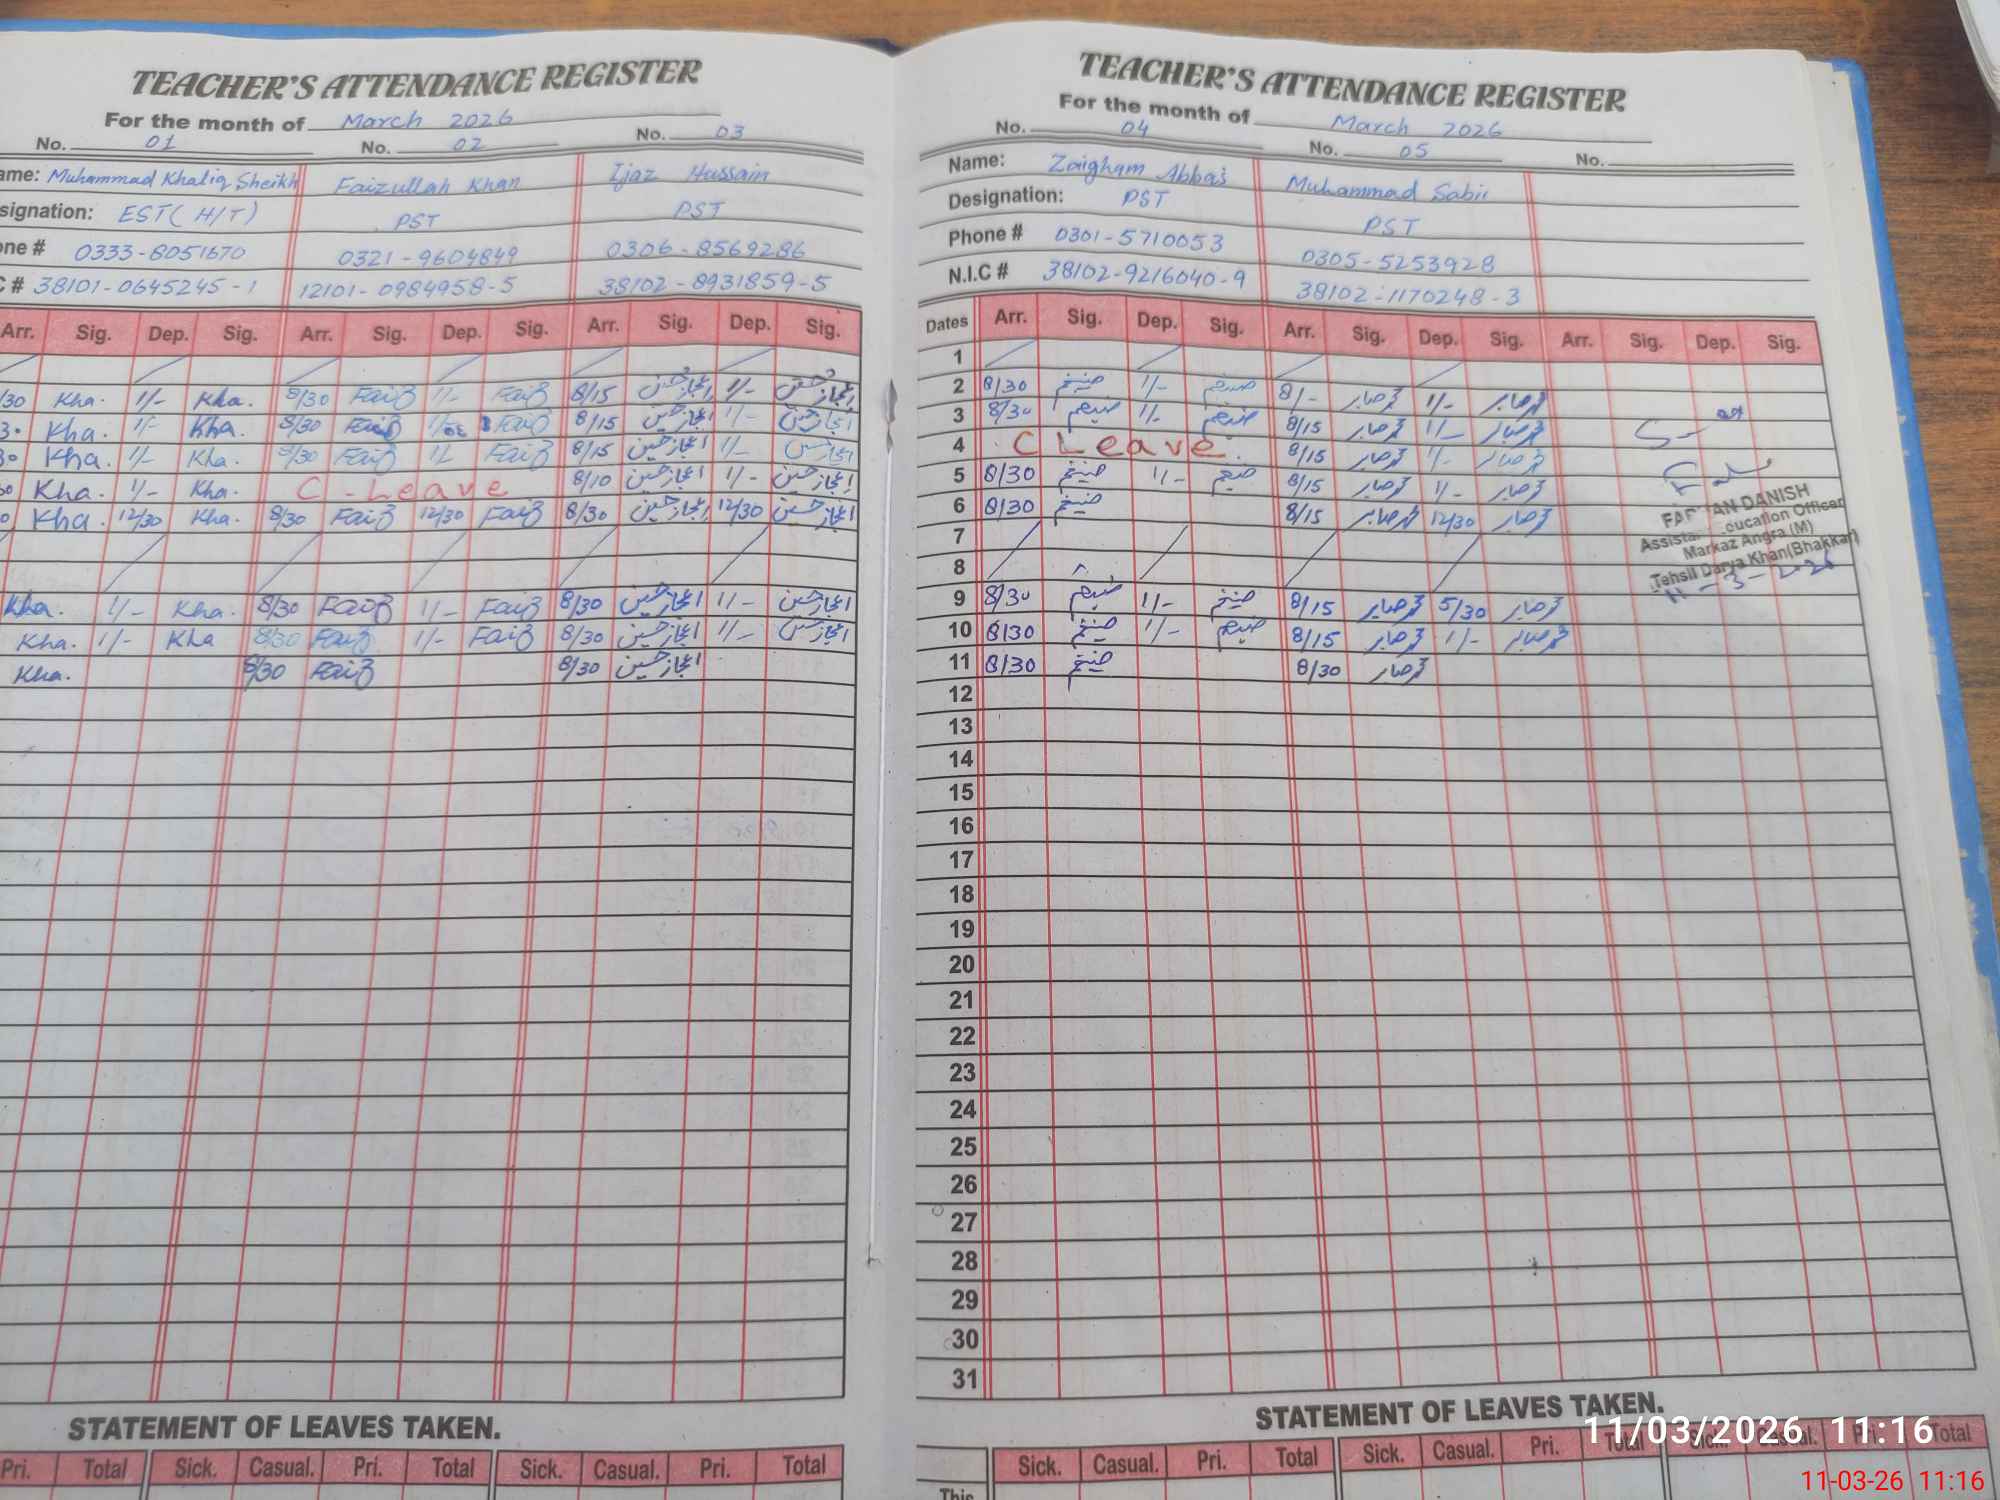 TEACHER'S ATTENDANCE REGISTER
For the month of March 2026
No. 01 No. 02 No. 03
ame: Muhammad Khaliq Sheikh Faizullah Khan Ijaz Hussain
signation: EST (H/T) PST PST
one # 0333-8051670 0321-9604849 0306-8569286
C # 38101-0645245-1 12101-0984958-5 38102-8931859-5
Arr. Sig. Dep. Sig. Arr. Sig. Dep. Sig. Arr. Sig. Dep. Sig.
/30 Kha. 1/- Kha. 8/30 Faiz 1/- Faiz 8/15 اعجاز حسین 1/- اعجاز حسین
30 Kha. 1/- Kha. 8/30 Faiz Faiz 8/15 اعجاز حسین 1/- اعجاز حسین
30 Kha. 1/- Kha. 8/30 Faiz 1/- Faiz 8/15 اعجاز حسین 1/- اعجاز حسین
30 Kha. 1/- Kha. C-Leave 8/10 اعجاز حسین 1/- اعجاز حسین
0 Kha. 12/30 Kha. 8/30 Faiz 12/30 Faiz 8/30 اعجاز حسین 12/30 اعجاز حسین
Kha. 1/- Kha. 8/30 Faiz 1/- Faiz 8/30 اعجاز حسین 1/- اعجاز حسین
Kha. 1/- Kha 8/30 Faiz 1/- Faiz 8/30 اعجاز حسین 1/- اعجاز حسین
Kha. 8/30 Faiz 8/30 اعجاز حسین
STATEMENT OF LEAVES TAKEN.
Pri. Total Sick. Casual. Pri. Total Sick. Casual. Pri. Total
TEACHER'S ATTENDANCE REGISTER
For the month of March 2026
No. 04 No. 05 No.
Name: Zaigham Abbas Muhammad Sabir
Designation: PST PST
Phone # 0301-5710053 0305-5253928
N.I.C # 38102-9216040-9 38102-1170248-3
Dates Arr. Sig. Dep. Sig. Arr. Sig. Dep. Sig. Arr. Sig. Dep. Sig.
1
2 8/30 ضیغم 1/- ضیغم 8/- محمد صابر 1/- محمد صابر
3 8/30 ضیغم 1/- ضیغم 8/15 محمد صابر 1/- محمد صابر
4 C Leave. 8/15 محمد صابر 1/- محمد صابر
5 8/30 ضیغم 1/- ضیغم 8/15 محمد صابر 1/- محمد صابر
6 8/30 ضیغم 8/15 محمد صابر 12/30 محمد صابر
7
8
9 8/30 ضیغم 1/- ضیغم 8/15 محمد صابر 5/30 محمد صابر
10 8/30 ضیغم 1/- ضیغم 8/15 محمد صابر 1/- محمد صابر
11 8/30 ضیغم 8/30 محمد صابر
12
13
14
15
16
17
18
19
20
21
22
23
24
25
26
27
28
29
30
31
DANISH
Education Officer
Markaz Angra (M)
Tehsil Darya Khan(Bhakkar)
11-3-2026
STATEMENT OF LEAVES TAKEN.
Sick. Casual. Pri. Total Sick. Casual. Pri. Total Sick. Casual. Pri. Total
This
11/03/2026 11:16
11-03-26 11:16